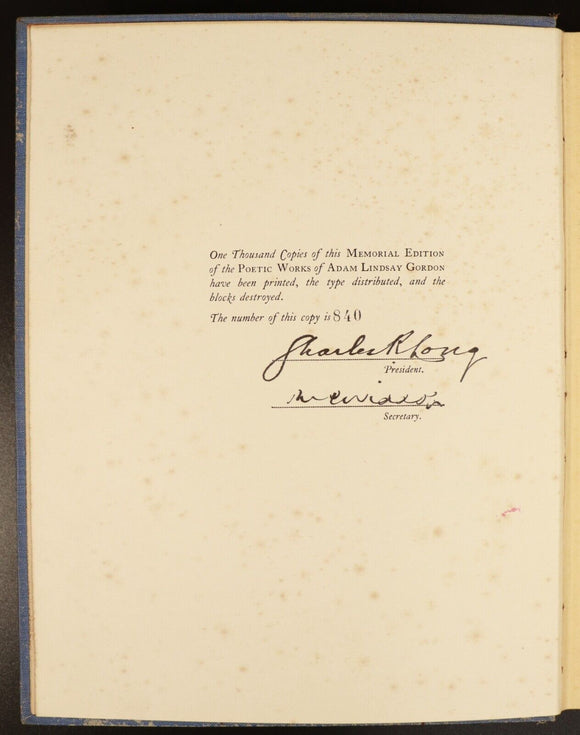 One Thousand Copies of this MEMORIAL EDITION
of the POETIC WORKS of ADAM LINDSAY GORDON
have been printed, the type distributed, and the
blocks destroyed.
The number of this copy is 840
Charles R Long
President.
Secretary.